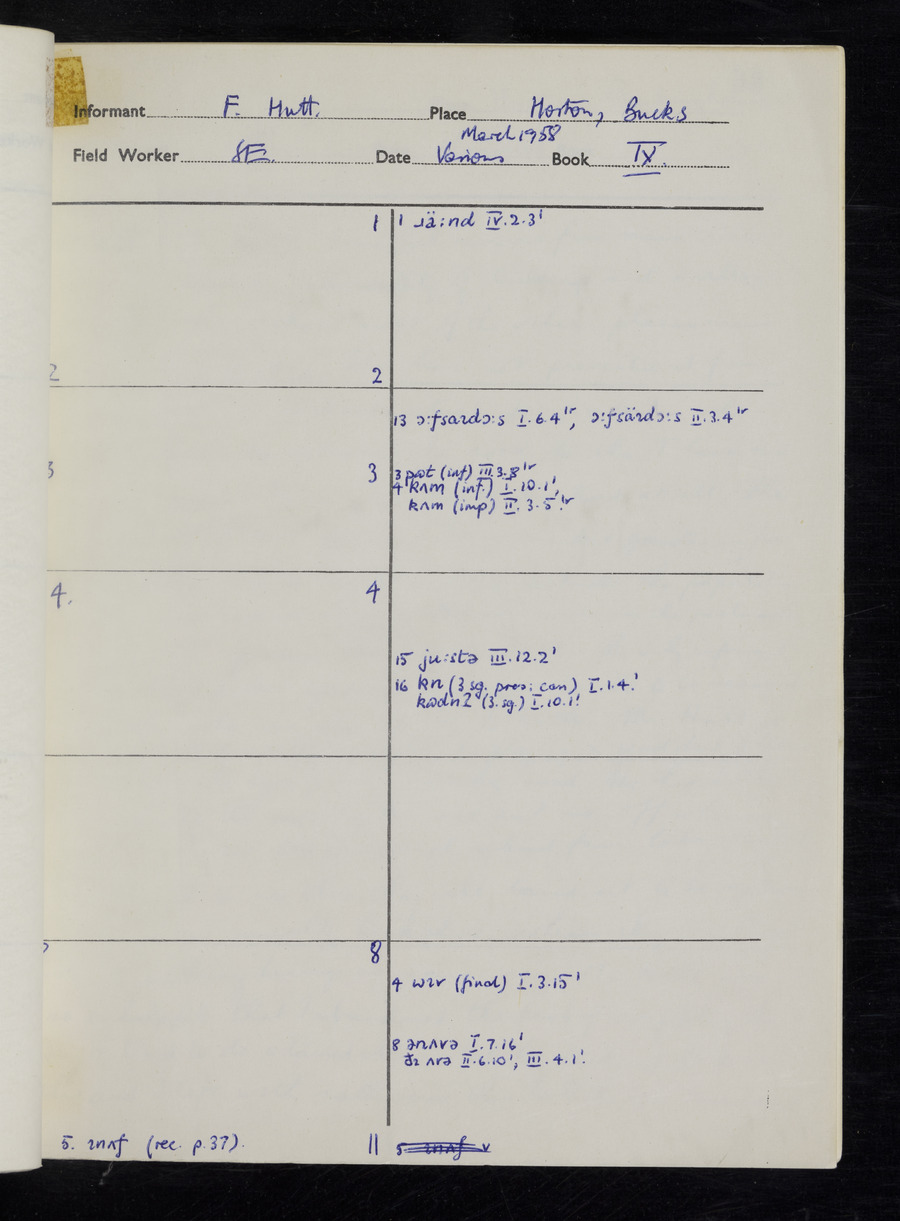 Informant F. Hutt. Place Horton, Bucks
Field Worker SE. Date March 1958 Various Book IX.
1 1 ɹä:nd IV.2.3'
2 2
13 ɔ:fsaɹdɔ:s I.6.4'ʳ, ɔ:fsäɹdɔ:s II.3.4'ʳ
3 3 3 pɷt (inf) III.3.8'ʳ
4 kʌm (inf.) I.10.1',
kʌm (imp) II.3.5'ʳ
4. 4
15 ju:stə III.12.2'
16 kn (3 sg. pres: can) I.1.4.'
kɷdnʔ (3. sg.) I.10.1!
8
4 wɪv (final) I.3.15'
8 ənʌvə I.7.16'
ðɪ ʌvə II.6.10', III.4.1'.
5. ɪnʌf (rec. p.37). 11 5 ɪnʌf v